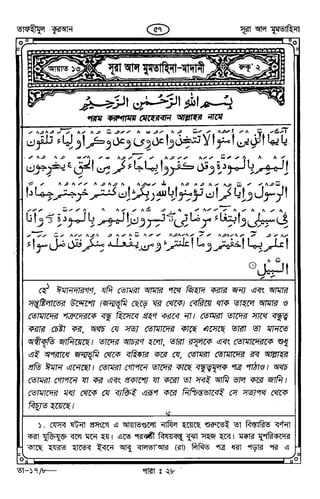 তাফহীমুল কুরআন ৫৭ সূরা আল মুমতাহিনা
আয়াত ১৩ সূরা আল মুমতাহিনা-মাদানী রুকূ' ২
بِسْمِ اللّٰهِ الرَّحْمٰنِ الرَّحِيْمِ
পরম করুণাময় মেহেরবান আল্লাহর নামে
يٰٓاَيُّهَا الَّذِيْنَ اٰمَنُوْا لَا تَتَّخِذُوْا عَدُوِّيْ وَعَدُوَّكُمْ اَوْلِيَآءَ تُلْقُوْنَ
اِلَيْهِمْ بِالْمَوَدَّةِ وَقَدْ كَفَرُوْا بِمَا جَآءَكُمْ مِّنَ الْحَقِّ ۚ يُخْرِجُوْنَ
الرَّسُوْلَ وَاِيَّاكُمْ اَنْ تُؤْمِنُوْا بِاللّٰهِ رَبِّكُمْ ؕ اِنْ كُنْتُمْ خَرَجْتُمْ جِهَادًا
فِيْ سَبِيْلِيْ وَابْتِغَآءَ مَرْضَاتِيْ ۖ تُسِرُّوْنَ اِلَيْهِمْ بِالْمَوَدَّةِ ۖ وَاَنَا
اَعْلَمُ بِمَآ اَخْفَيْتُمْ وَمَآ اَعْلَنْتُمْ ؕ وَمَنْ يَّفْعَلْهُ مِنْكُمْ فَقَدْ ضَلَّ سَوَآءَ
السَّبِيْلِ ①
হে ঈমানদারগণ, যদি তোমরা আমার পথে জিহাদ করার জন্য এবং আমার
সন্তুষ্টিলাভের উদ্দেশ্যে (জন্মভূমি ছেড়ে ঘর থেকে) বেরিয়ে থাক তাহলে আমার ও
তোমাদের শত্রুদেরকে বন্ধু হিসেবে গ্রহণ করবে না। তোমরা তাদের সাথে বন্ধুত্ব
করার চেষ্টা কর, অথচ যে সত্য তোমাদের কাছে এসেছে তারা তা মানতে
অস্বীকৃতি জানিয়েছে। তাদের আচরণ হলো, তারা রসূলকে এবং তোমাদেরকে শুধু
এই অপরাধে জন্মভূমি থেকে বহিষ্কার করে যে, তোমরা তোমাদের রব আল্লাহর
প্রতি ঈমান এনেছো। তোমরা গোপনে তাদের কাছে বন্ধুত্বমূলক পত্র পাঠাও। অথচ
তোমরা গোপনে যা কর এবং প্রকাশ্যে যা করো তা সবই আমি ভাল করে জানি।
তোমাদের মধ্য থেকে যে ব্যক্তিই এরূপ করে নিশ্চিতভাবেই সে সত্যপথ থেকে
বিচ্যুত হয়েছে।
১. যেসব ঘটনা প্রসংগে এ আয়াতগুলো নাযিল হয়েছে শুরুতেই তা বিস্তারিত বর্ণনা
করা যুক্তিযুক্ত বলে মনে হয়। এতে পরবর্তী বিষয়বস্তু বুঝা সহজ হবে। মক্কার মুশরিকদের
কাছে হযরত হাতেব ইবনে আবু বালতা'আর (রা) লিখিত পত্র ধরা পড়ার পর এ
তা—১৭/৮— পারা : ২৮